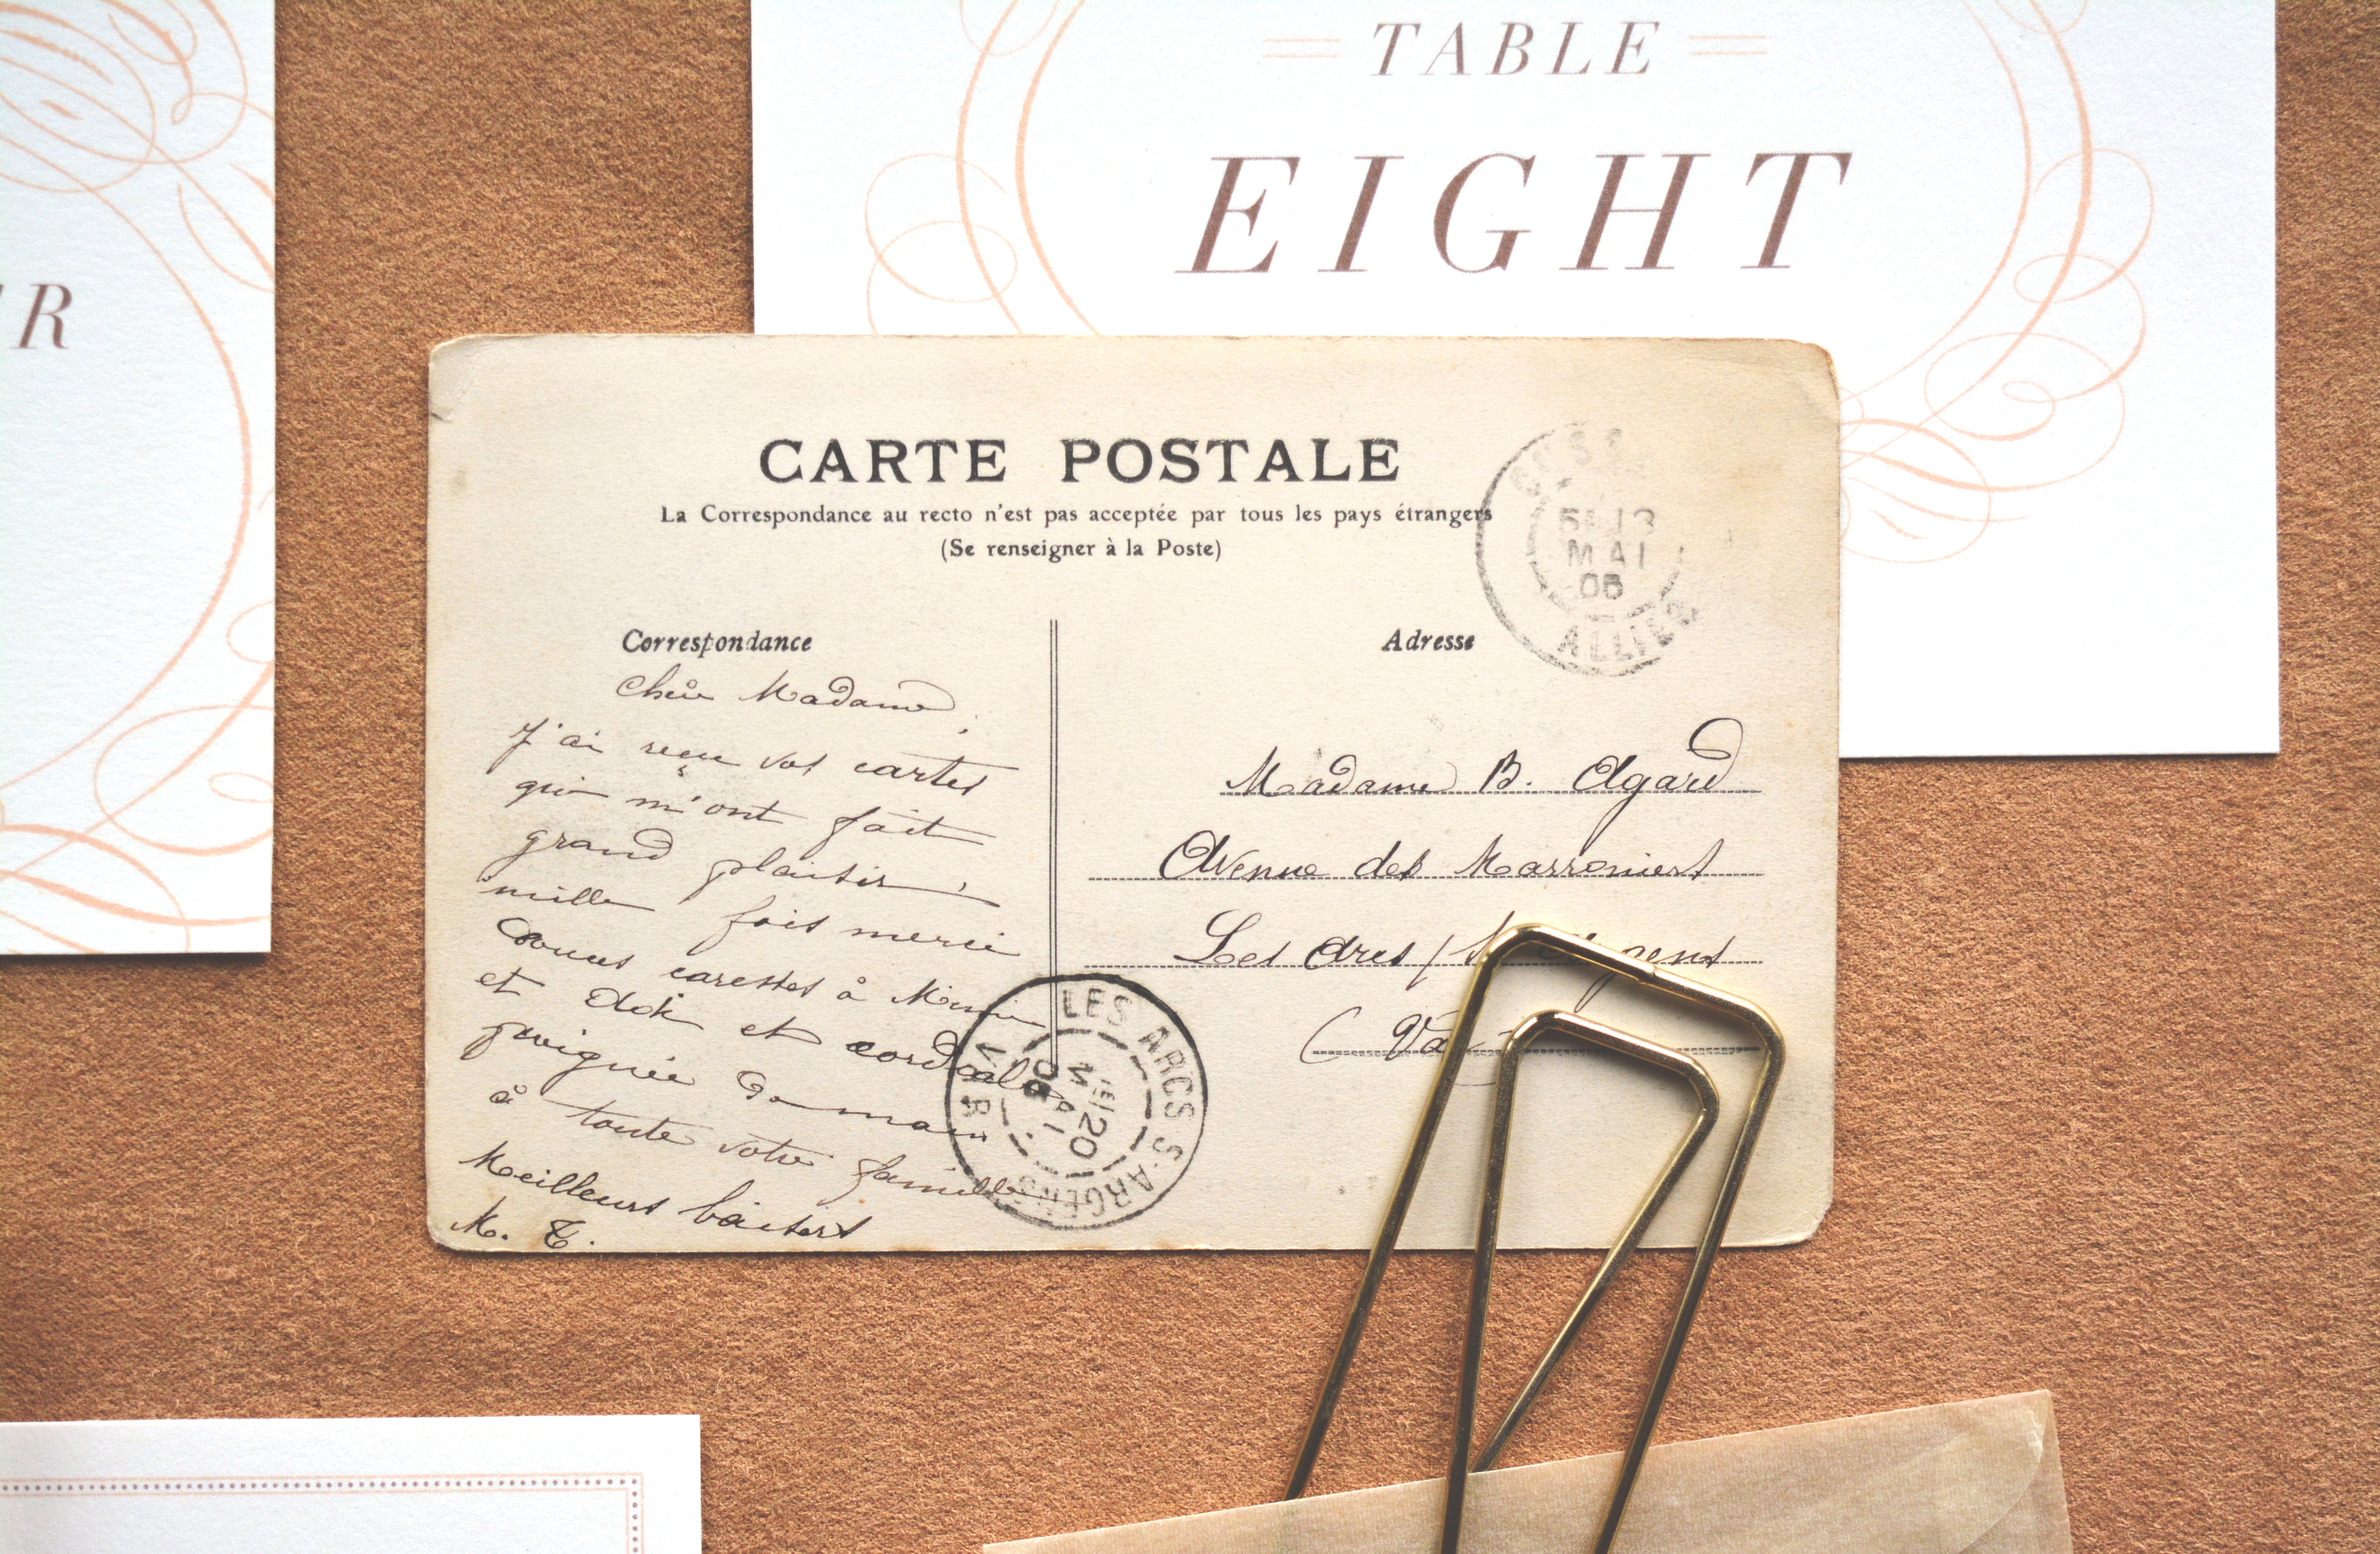 TABLE
EIGHT
R
CARTE POSTALE
La Correspondance au recto n'est pas acceptée par tous les pays étrangers
(Se renseigner à la Poste)
Correspondance
Chère Madame,
J'ai reçu vos cartes
qui m'ont fait
grand plaisir,
mille fois merci
Douces caresses à Mimi
et et cordiale
poignée de main
à toute votre famille
Meilleurs baisers
M. T.
Adresse
Madame B. Agard
Avenue des Marroniers
Les Arcs
MAI
ALLIER
LES ARCS S-ARGENS
VAR
20
MAI